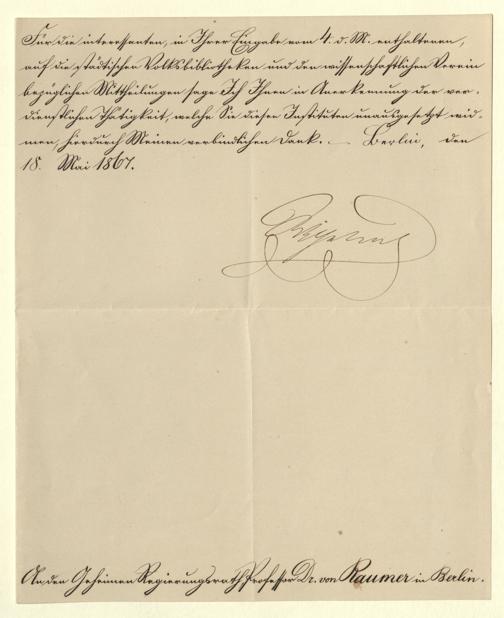 Für die interessanten, in Ihrer Eingabe vom 4. d. M. enthaltenen,
auf die städtischen Volksbibliotheken und den wissenschaftlichen Verein
bezüglichen Mittheilungen sage Ich Ihnen in Anerkennung der ver-
dienstlichen Thätigkeit, welche Sie diesen Instituten unausgesetzt wid-
men, hierdurch Meinen verbindlichen Dank. — Berlin, den
18. Mai 1867.
Wilhelm
An den Geheimen Regierungsrath Professor Dr. von Raumer in Berlin.